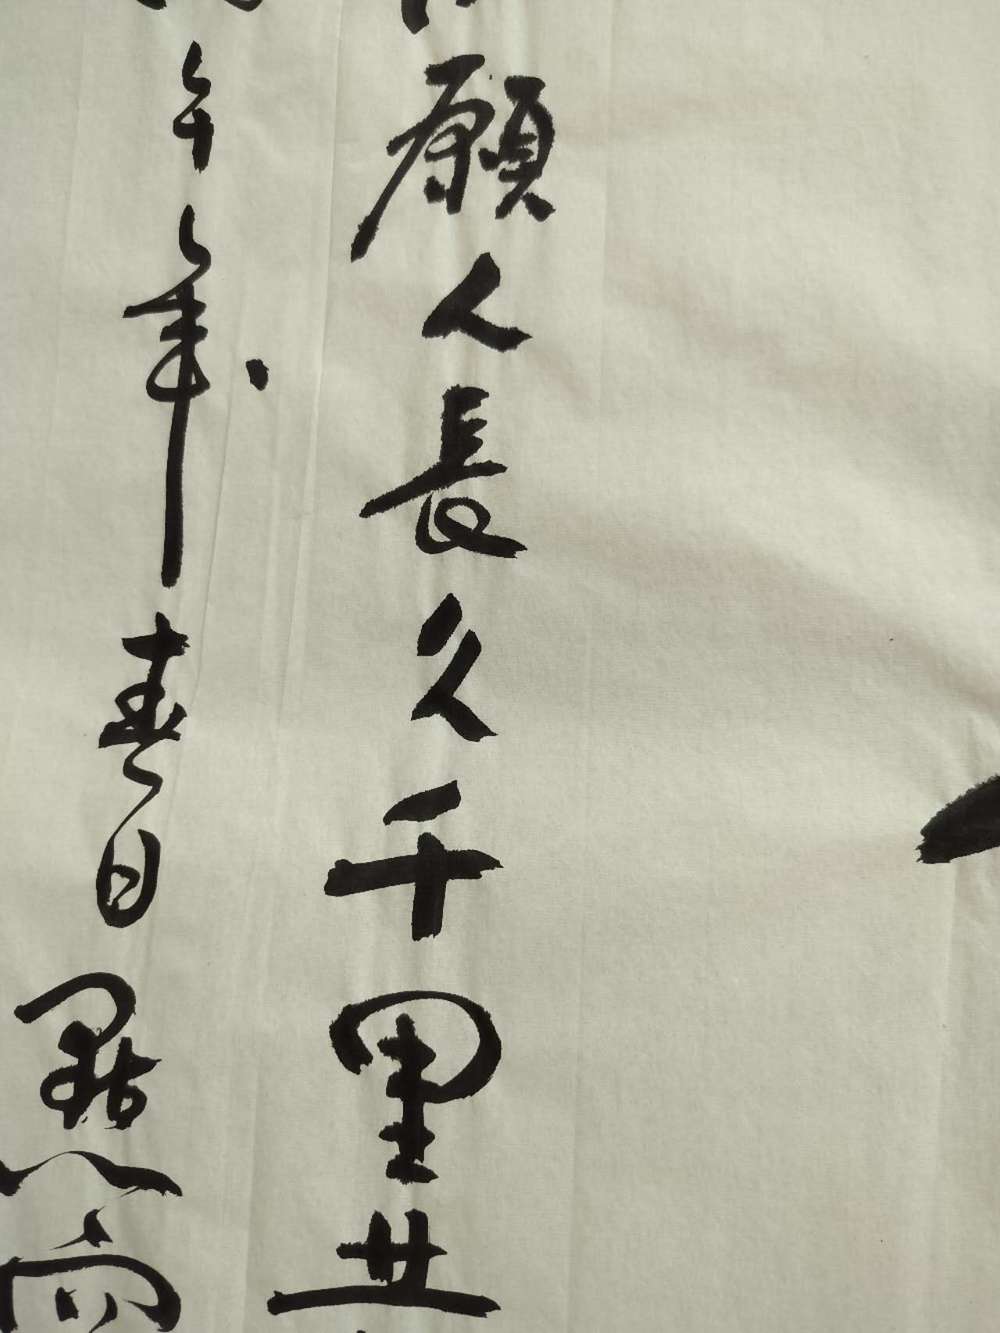 願人長久千里共
午年春日